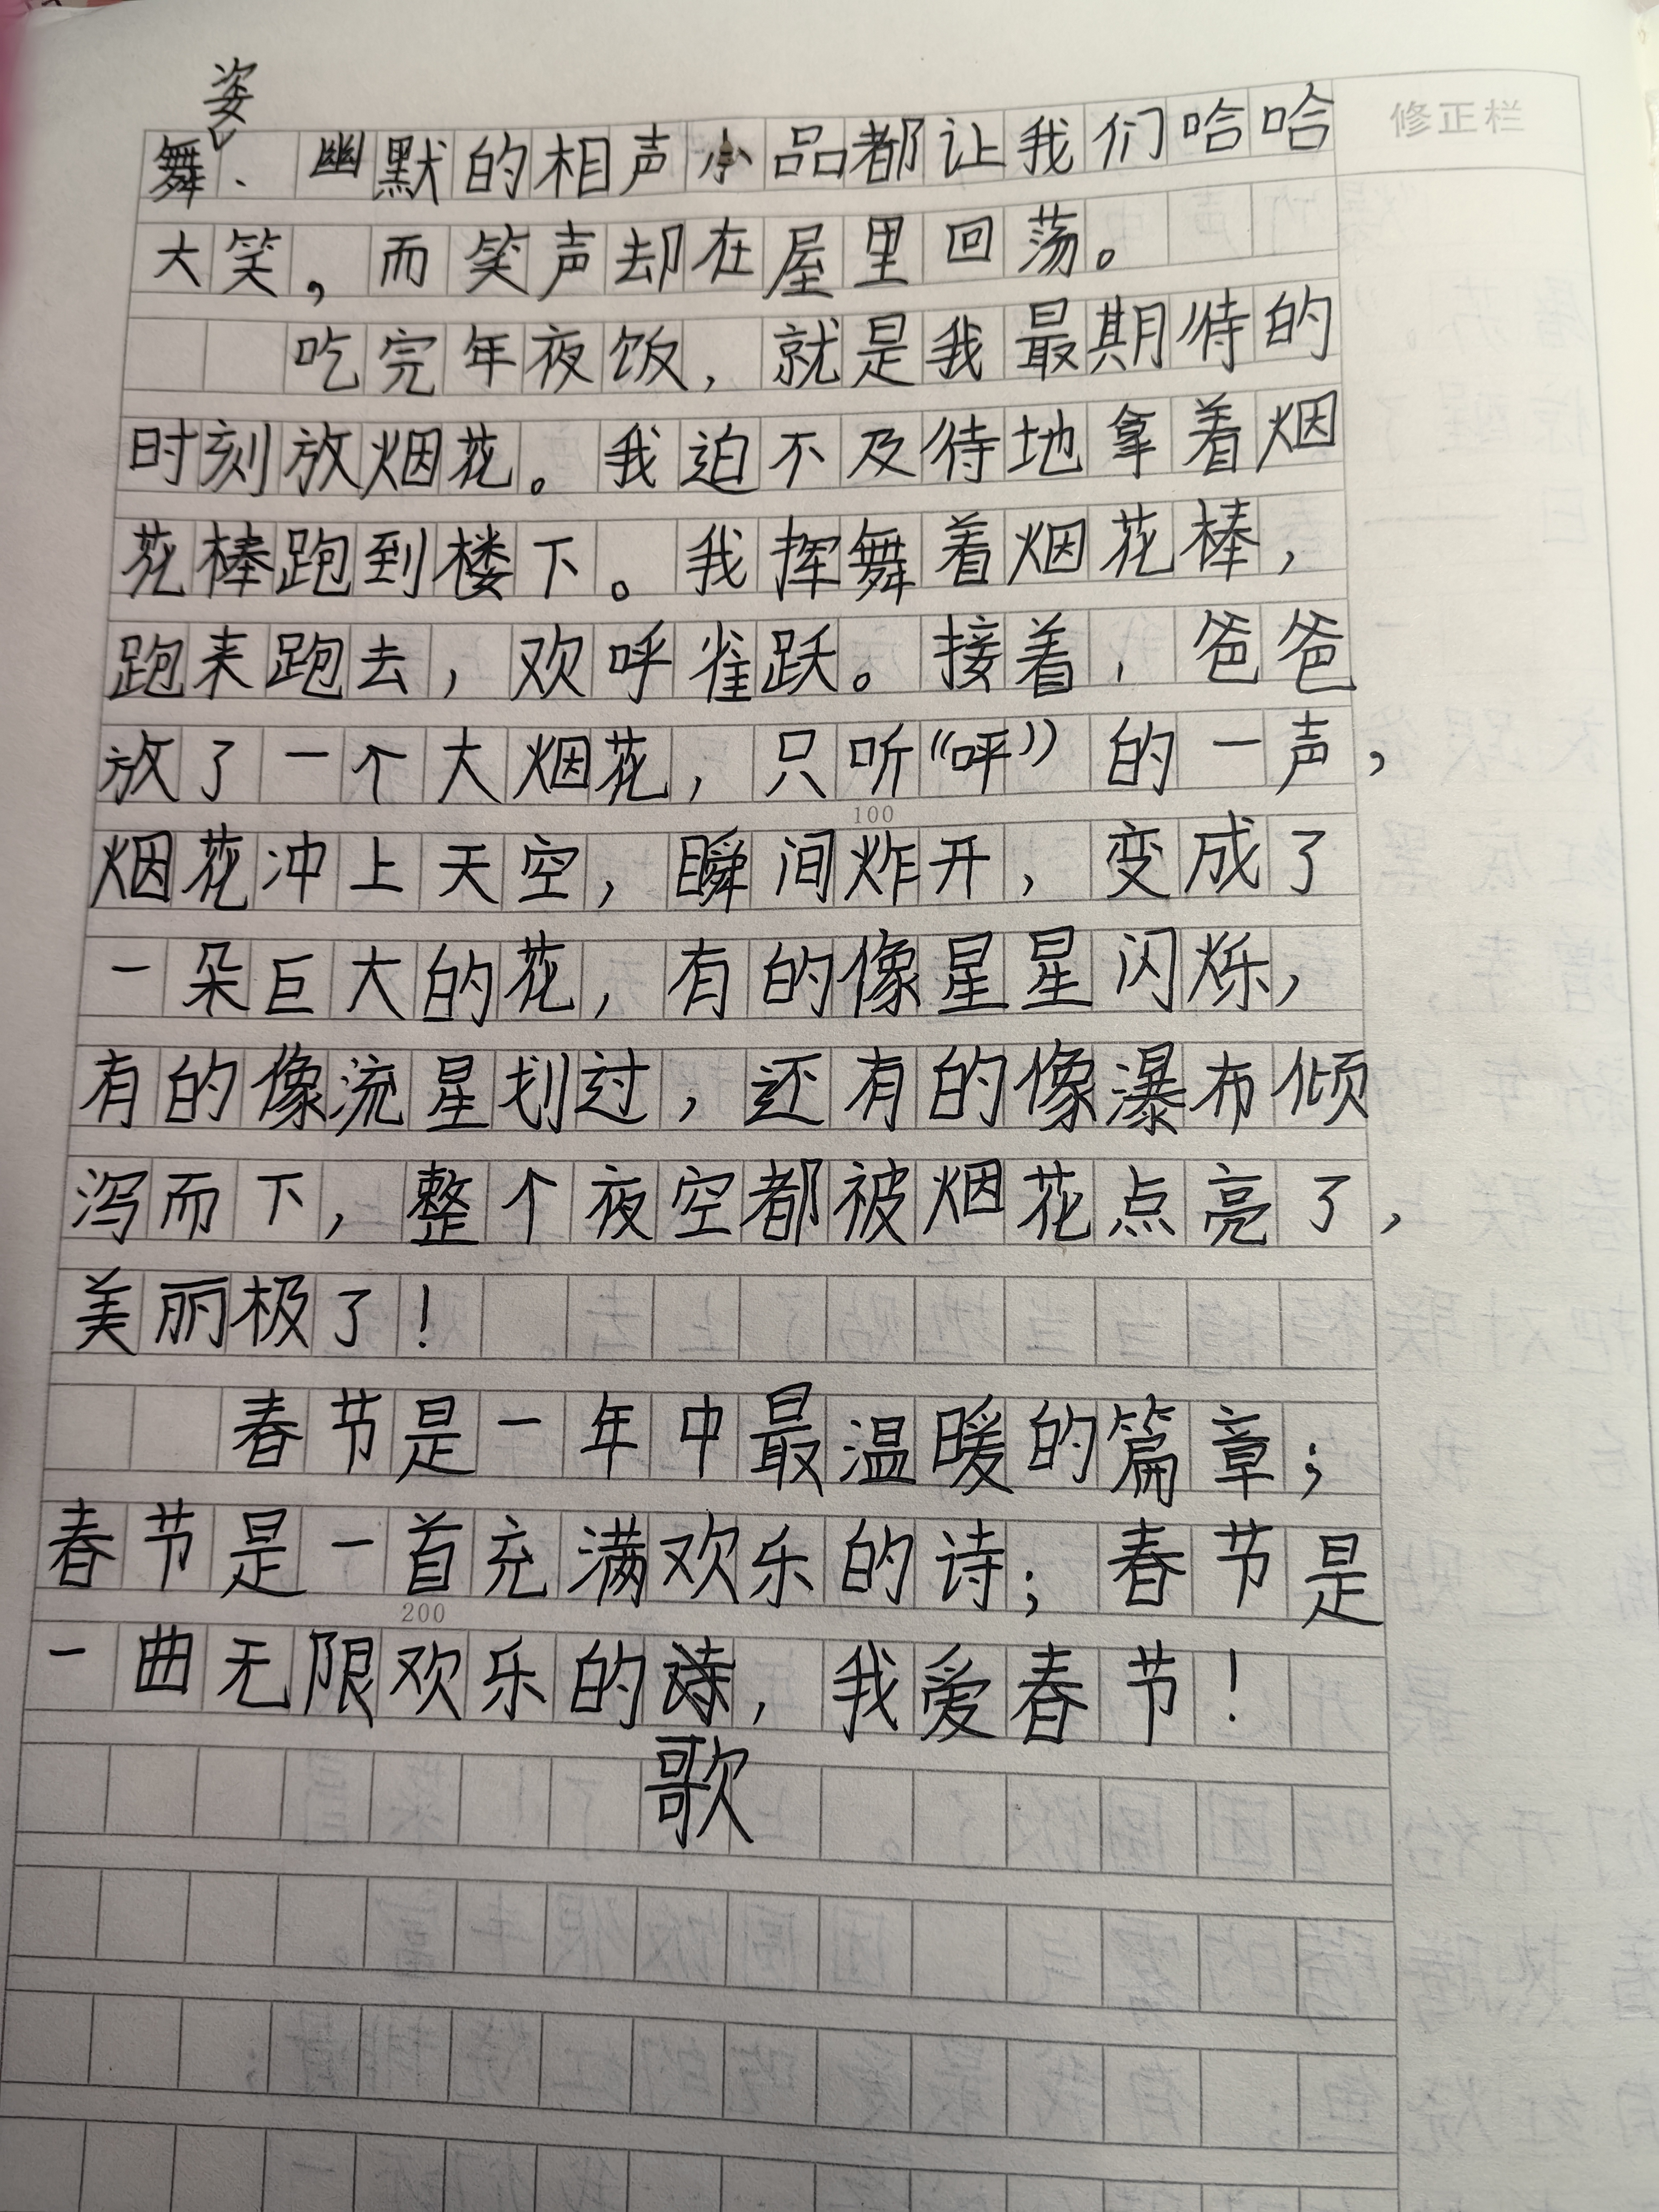 姿
舞、幽默的相声小品都让我们哈哈
修正栏
大笑，而笑声却在屋里回荡。
吃完年夜饭，就是我最期待的
时刻放烟花。我迫不及待地拿着烟
花棒跑到楼下。我挥舞着烟花棒，
跑来跑去，欢呼雀跃。接着，爸爸
放了一个大烟花，只听“呯”的一声，
100
烟花冲上天空，瞬间炸开，变成了
一朵巨大的花，有的像星星闪烁，
有的像流星划过，还有的像瀑布倾
泻而下，整个夜空都被烟花点亮了，
美丽极了！
春节是一年中最温暖的篇章；
春节是一首充满欢乐的诗；春节是
200
一曲无限欢乐的诗，我爱春节！
歌